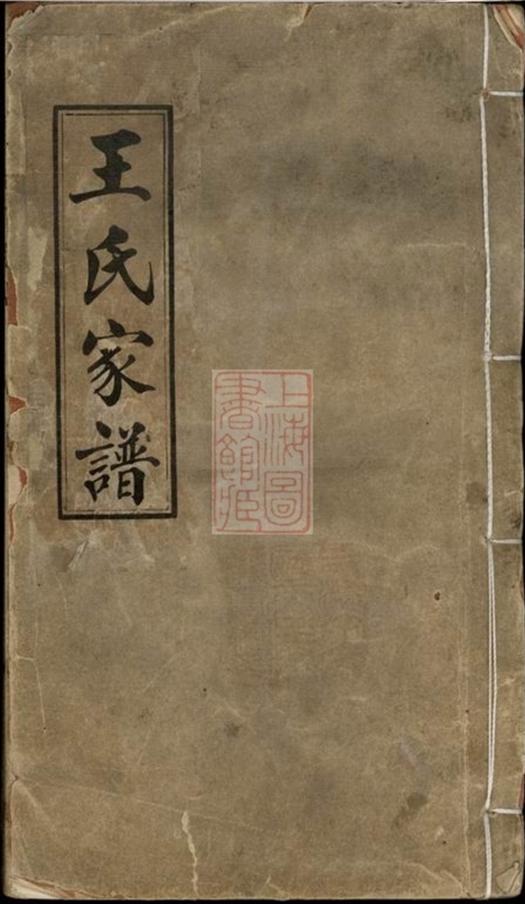 王氏家譜
上海圖
書館藏